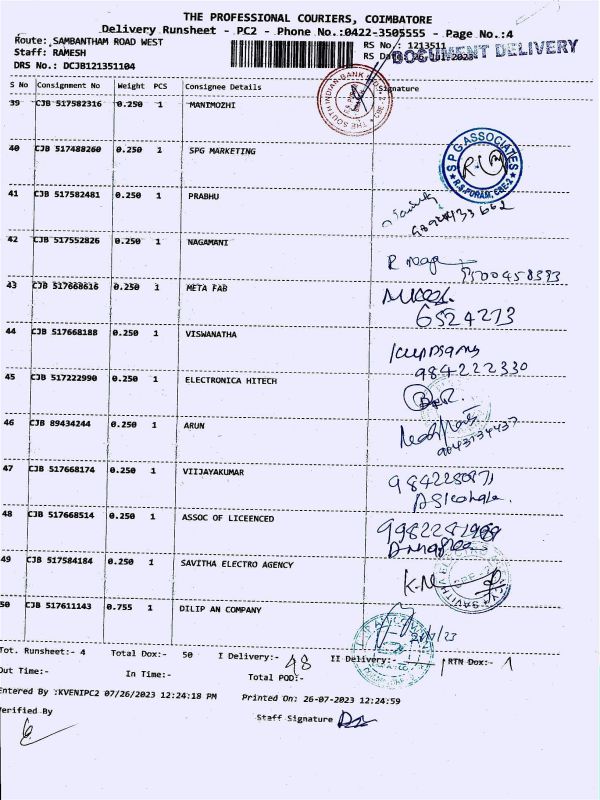 THE PROFESSIONAL COURIERS, COIMBATORE
Delivery Runsheet - PC2 - Phone No.:0422-3505555 - Page No.:4
Route: SAMBANTHAM ROAD WEST
RS No : 1213511
Staff: RAMESH
RS Date: 26-Jul-2023
DOCUMENT DELIVERY
DRS No.: DCJB121351104
S No Consignment No Weight PCS Consignee Details Signature
39 CJB 517582316 0.250 1 MANIMOZHI
THE SOUTH INDIAN BANK CBE-2
40 CJB 517488260 0.250 1 SPG MARKETING
S P G ASSOCIATES R.S.PURAM, CBE-2
41 CJB 517582481 0.250 1 PRABHU
42 CJB 517552826 0.250 1 NAGAMANI
R naga
9500458393
43 CJB 517668616 0.250 1 META FAB
6524273
44 CJB 517668188 0.250 1 VISWANATHA
984222330
45 CJB 517222990 0.250 1 ELECTRONICA HITECH
46 CJB 89434244 0.250 1 ARUN
9043134437
47 CJB 517668174 0.250 1 VIIJAYAKUMAR
48 CJB 517668514 0.250 1 ASSOC OF LICEENCED
49 CJB 517584184 0.250 1 SAVITHA ELECTRO AGENCY
50 CJB 517611143 0.755 1 DILIP AN COMPANY
Tot. Runsheet:- 4 Total Dox:- 50 I Delivery:- 48 II Delivery:- 1 RTN Dox:- 1
Out Time:- In Time:- Total POD:-
Entered By :KVENIPC2 07/26/2023 12:24:18 PM Printed On: 26-07-2023 12:24:59
Verified By
Staff Signature